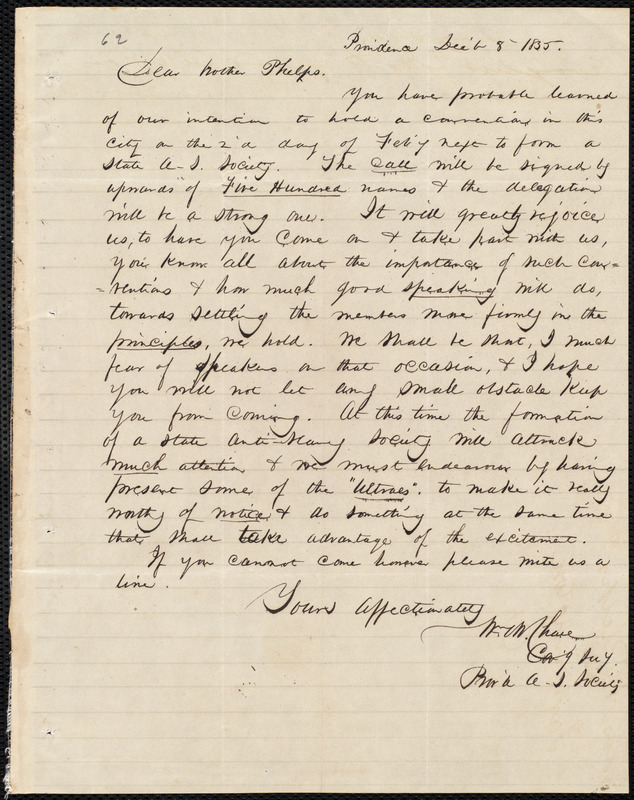 62
Providence Dec'b 8th 1835.
Dear brother Phelps.
You have probable learned
of our intention to hold a convention in this
city on the 2'd day of Feb'y next to form a
State A-S. Society. The call will be signed by
upwards of Five Hundred names & the delegation
will be a strong one. It will greatly rejoice
us, to have you come on & take part with us,
you know all about the importance of such con=
=ventions & how much good speaking will do,
towards settling the members more firmly in the
principles, we hold. We shall be short, I much
fear of speakers on that occasion, & I hope
you will not let any small obstacle keep
you from coming. At this time the formation
of a State Anti-Slavery Society will attrack
much attention & we must endeavour by having
present some of the "Ultraes". to make it really
worthy of notice & do something at the same time
that shall take advantage of the excitement.
If you cannot come however please write us a
line.
Yours affectionately
Wm. M. Chace
Cor'g Sec'y.
Prov'd A-S. Society